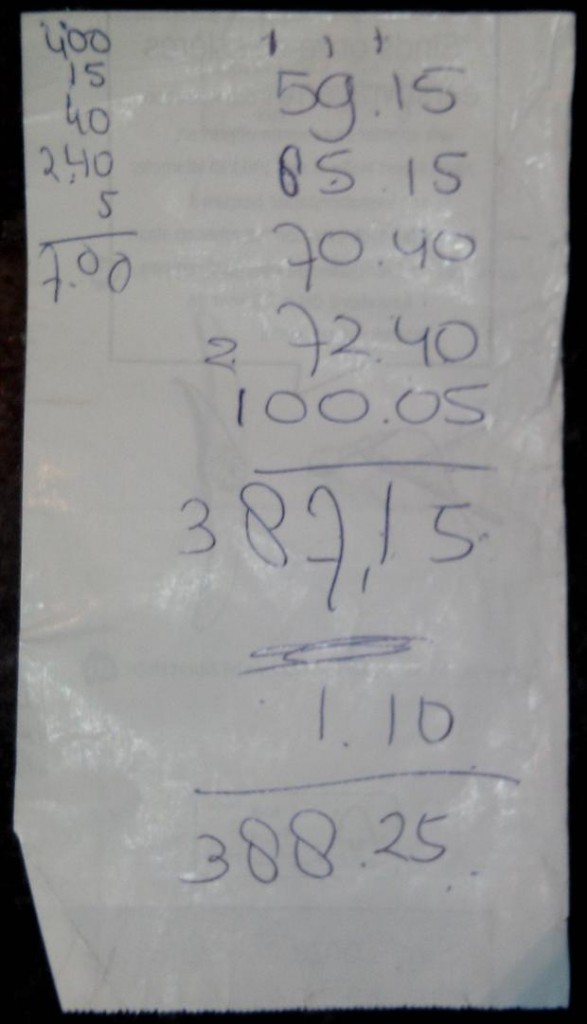 400
15
40
2.40
5
7.00
1 1 1
59.15
85.15
70.40
2 72.40
100.05
387,15
1.10
388.25